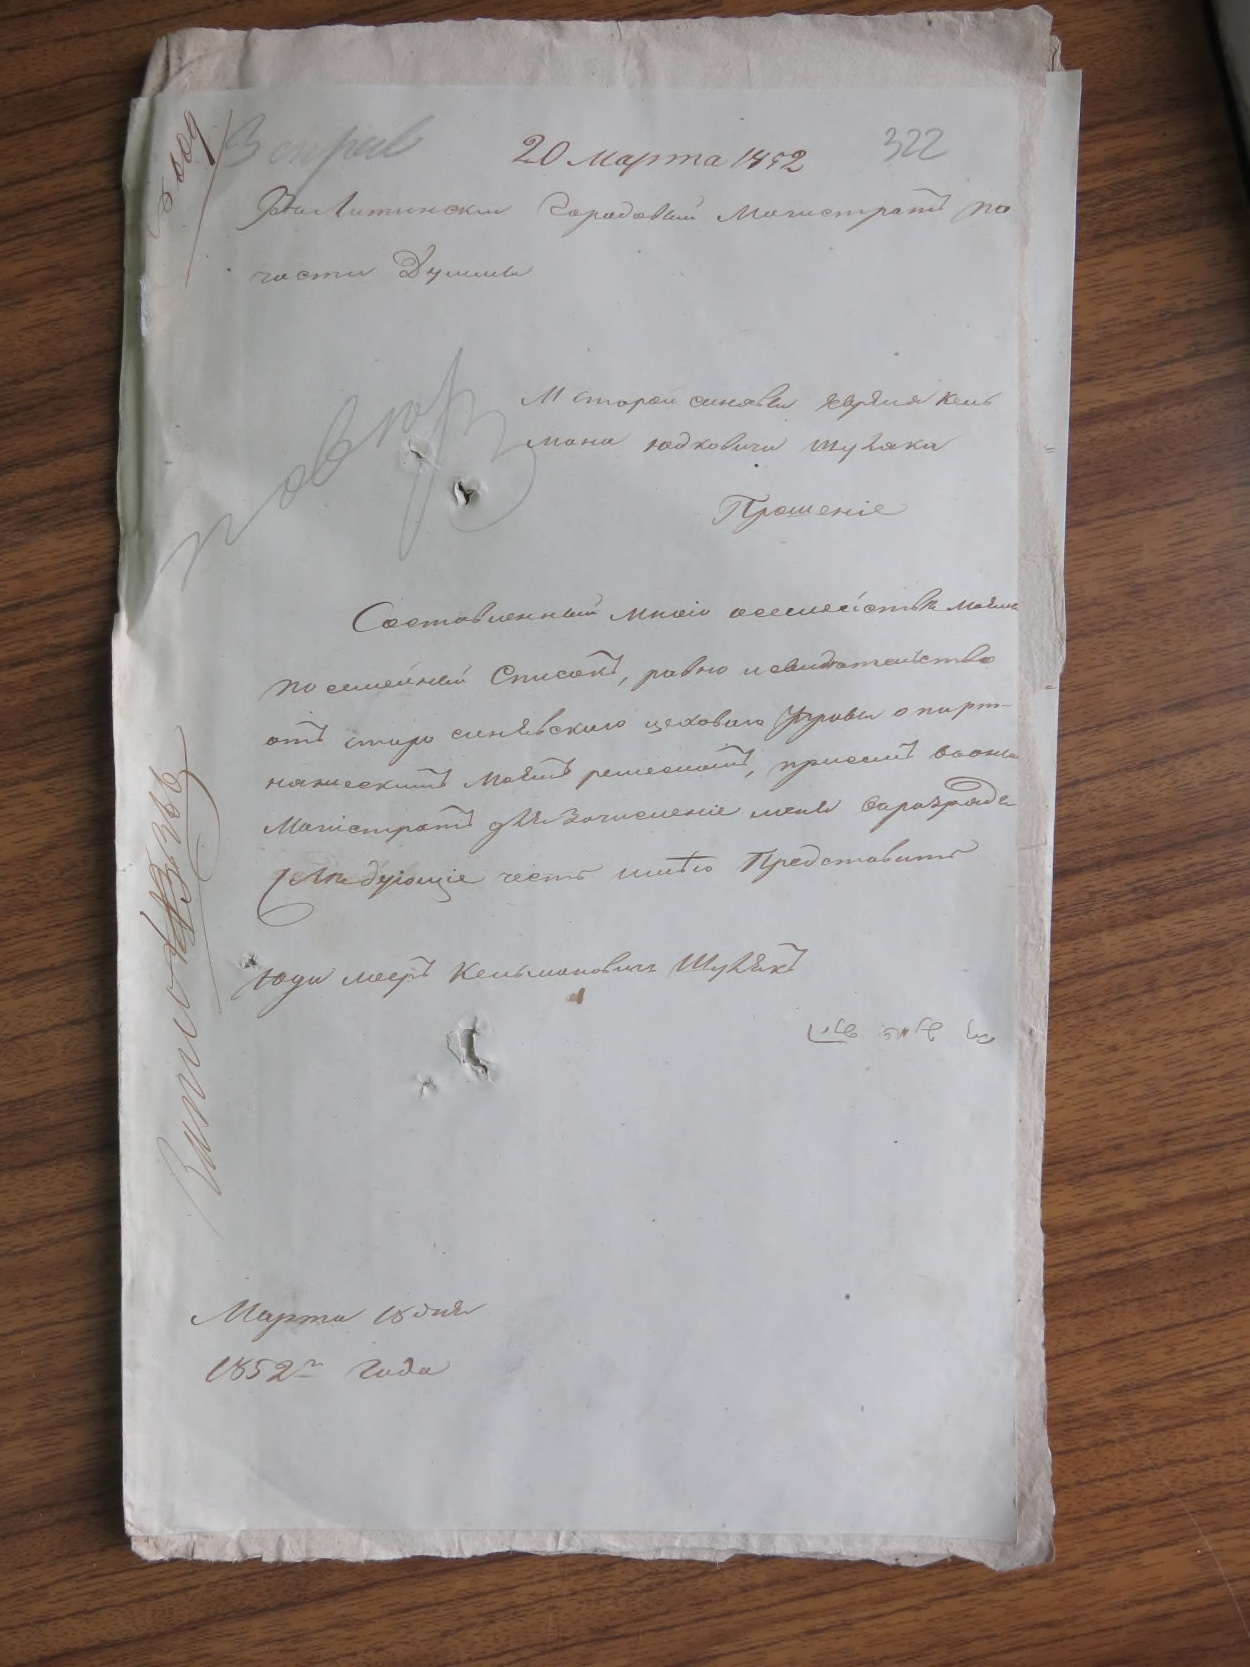 20 Марта 1852
322
Въ Литинский Городовый Магистратъ по
части Думы
М старой синявы еврея Кель
мана Юдковича Шуляка
Прошеніе
Составленный мною о семействе моемъ
посемейный Списокъ, равно и свидетельство
отъ старо синявского цехового управы о порт-
няжескимъ моемъ ремесломъ, присемъ в оный
Магистратъ для зачисленіе меня в разрядъ
следующіе честь имѣю Представить
Юди мееръ Кельмановичъ Шулякъ
Марта 18 дня
1852го Года